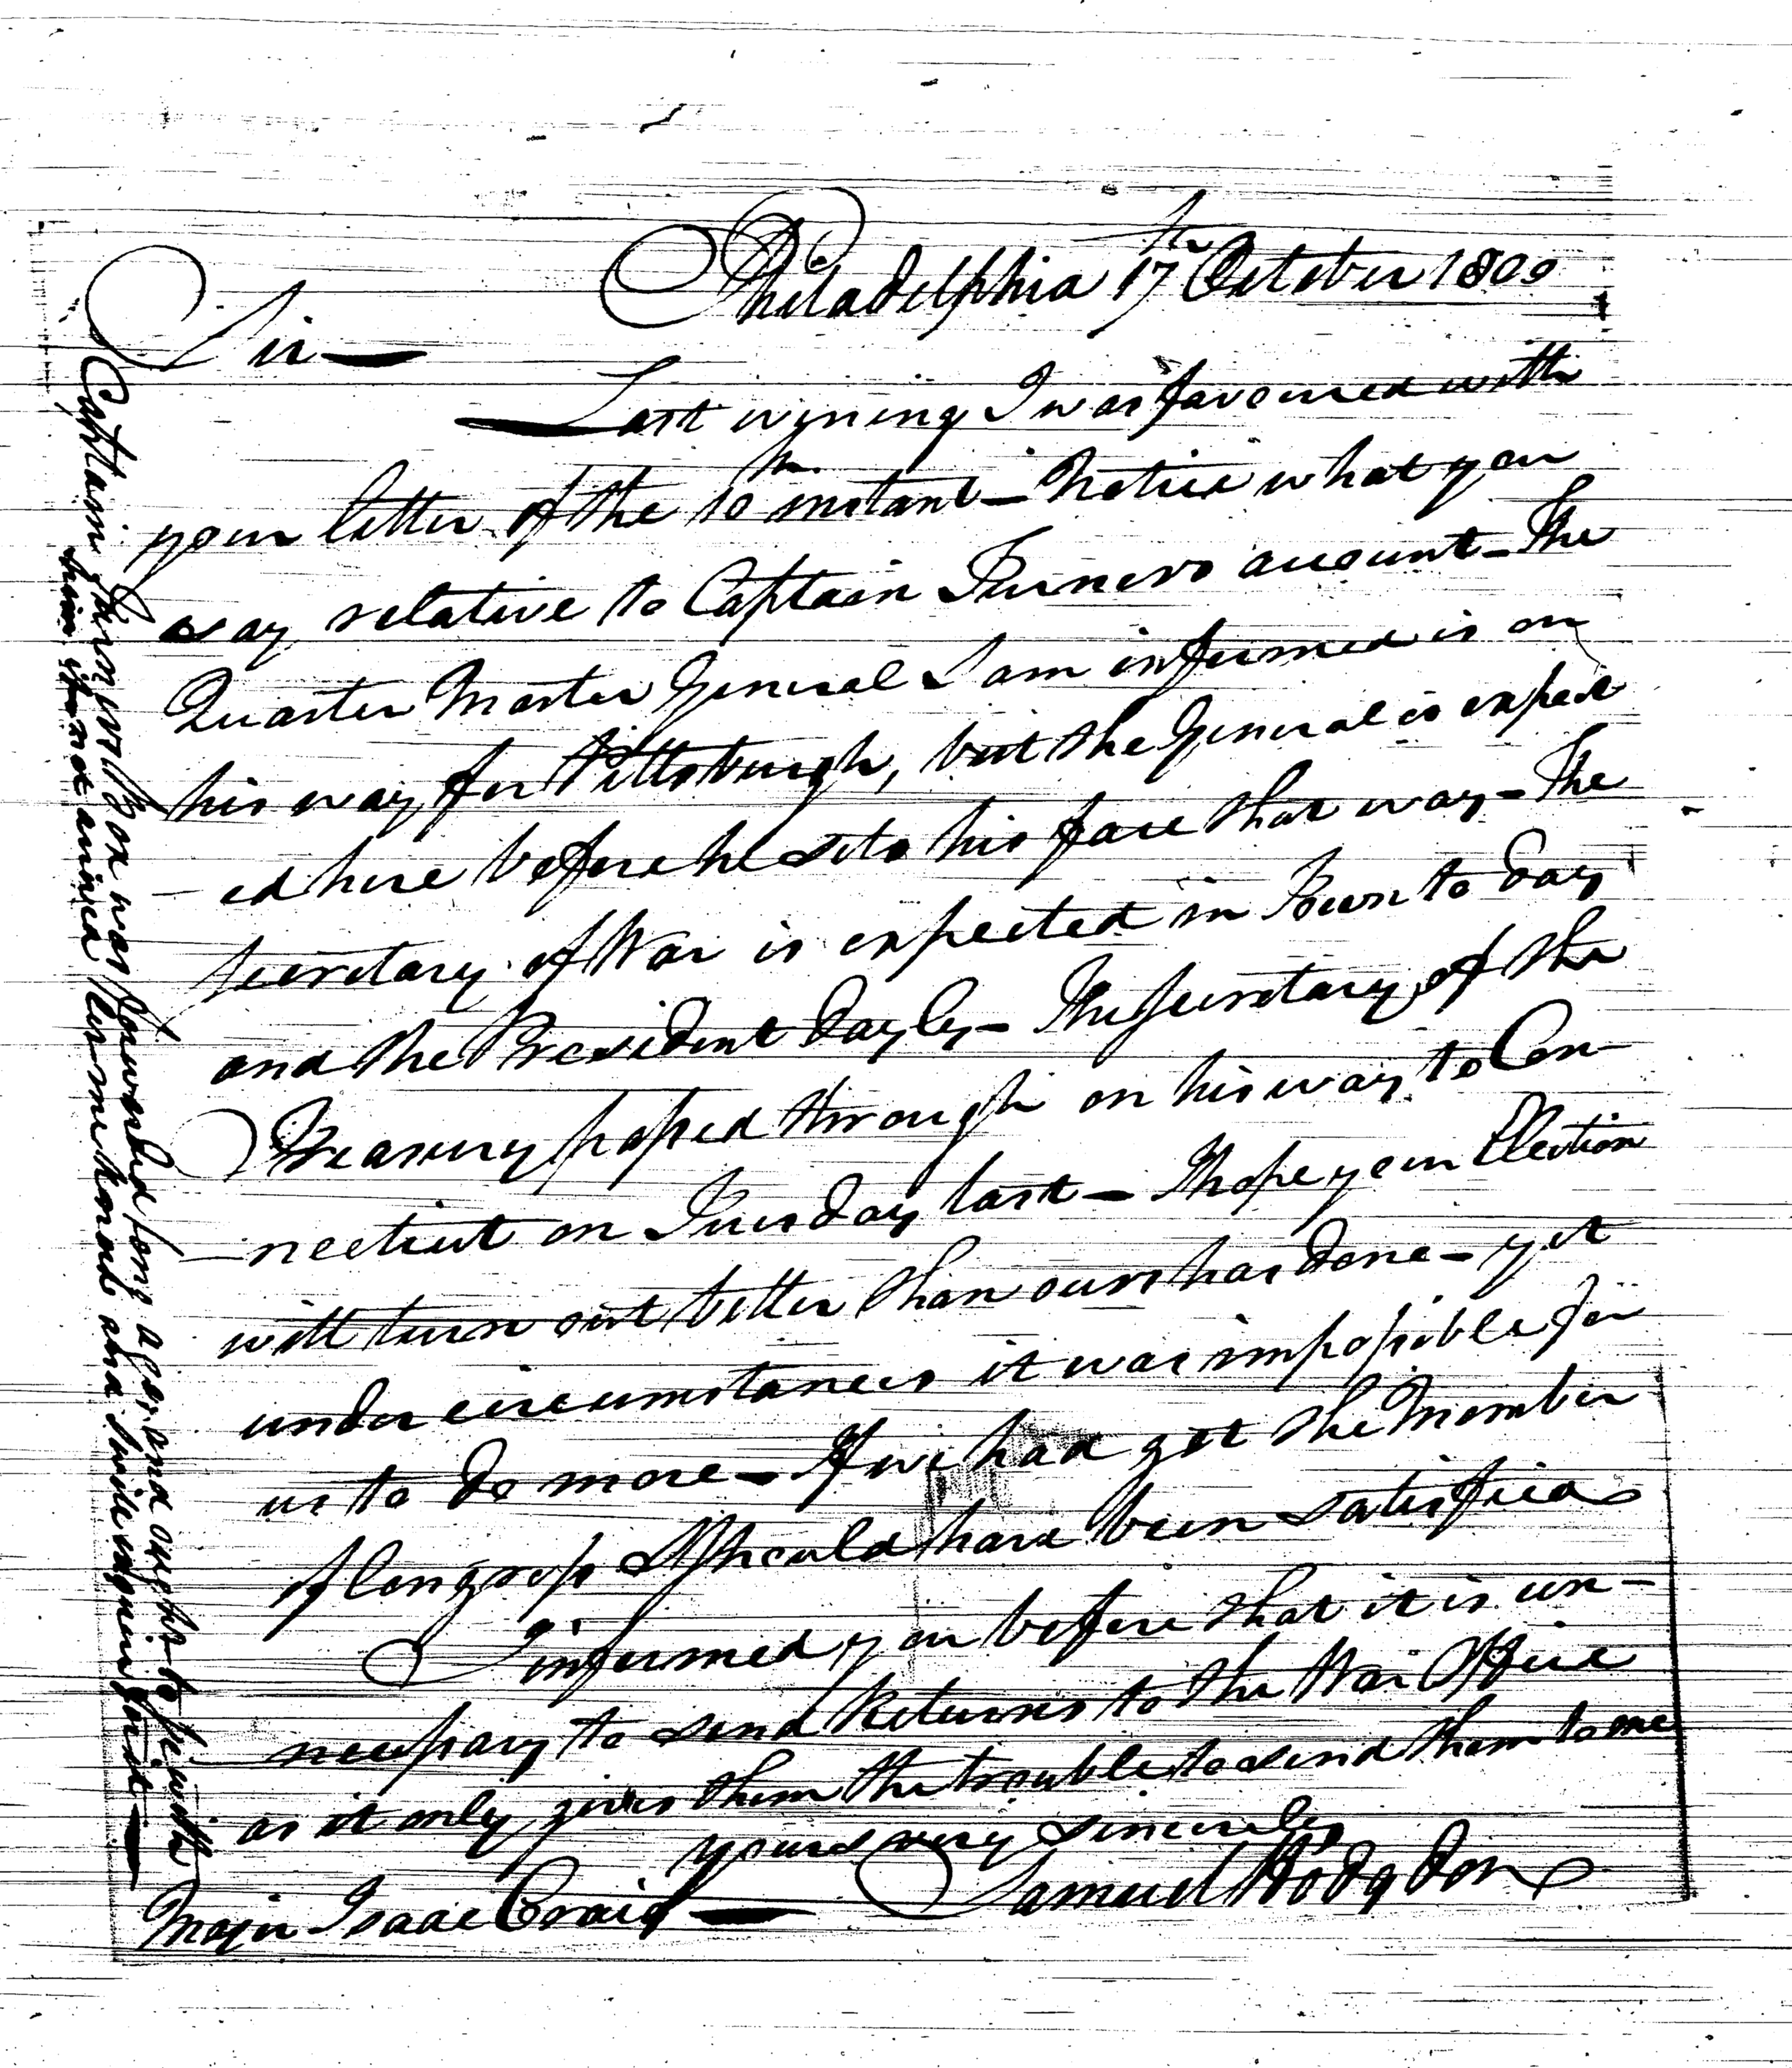 Philadelphia 17th October 1800
Sir —
Last evening I was favoured with
your letter of the 10th instant — notice what you
say relative to Captain Turners account — The
Quarter Master General I am informed is on
his way for Pittsburgh, but the General is expect
— ed here before he sets his face that way — The
Secretary of War is expected in Town to day
and the President dayly — The Secretary of the
Treasury passed through on his way to Con —
— necticut on Tuesday last — I hope your Election
will turn out better than ours has done — yet
under circumstances it was impossible for
us to do more — If we had got the Member
of Congress I should have been satisfied
I informed you before that it is un —
necessary to send Returns to the War Office
as it only gives them the trouble to send them to me
yours very sincerely
Samuel Hodgdon
Major Isaac Craig —
Captain Turners Box was forwarded long ago and ought to be with
him if not arrived let me know and I will enquire for it —